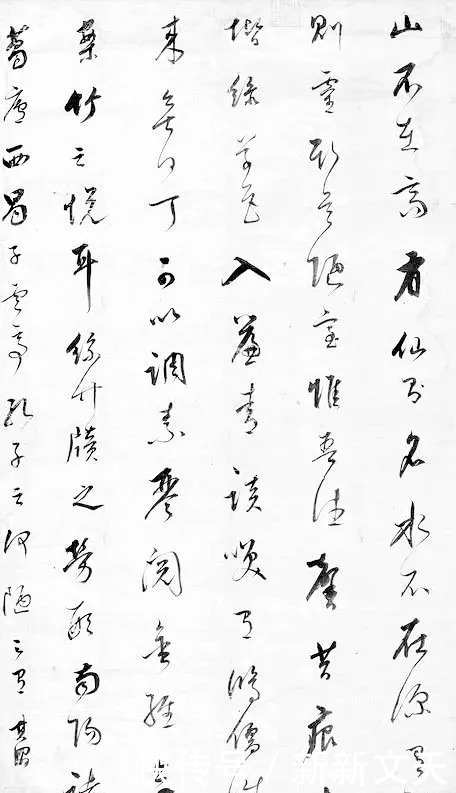 山不在高有仙則名水不在深有
則靈斯是陋室惟吾德馨苔痕
堦綠草色入簾青談笑有鴻儒往
來無白丁可以調素琴閱金經
竹之耳絲竹牘之勞形南陽諸
葛廬西蜀子雲亭孔子云何陋之有 其昌
新新文天